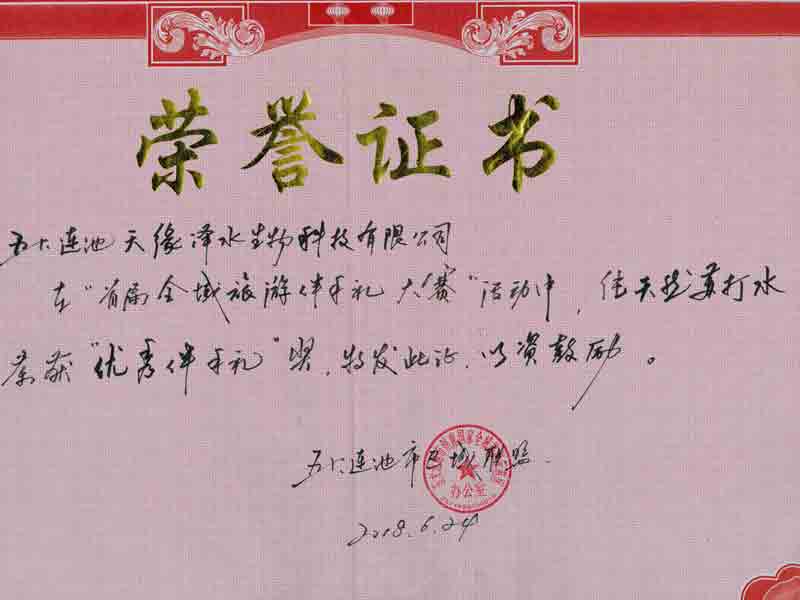 荣誉证书
五大连池天缘泽水生物科技有限公司
在"首届全域旅游伴手礼大赛"活动中,天然苏打水
荣获"优秀伴手礼"奖,特发此证,以资鼓励。
五大连池市区域联盟
办公室
2018.6.24